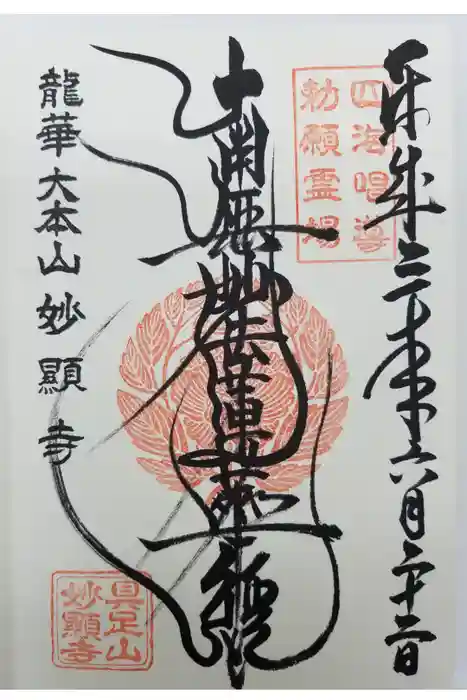 平成三十年六月二十二日
四海唱導
勅願霊場
南無妙法蓮華経
龍華 大本山 妙顯寺
具足山
妙顯寺